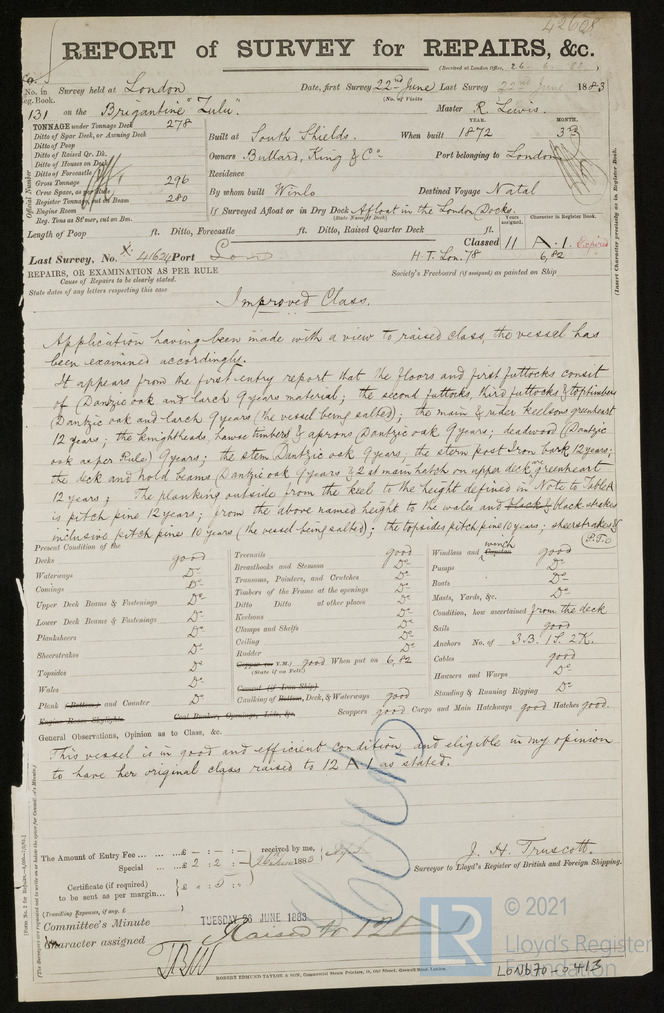 42608
REPORT of SURVEY for REPAIRS, &c.
(Received at London Office, 26. 6. 83.)
No. in Survey held at London Date, first Survey 22nd June Last Survey 22nd June 1883
Reg. Book. (No. of Visits
131 on the Brigantine "Zulu" Master R. Lewis.
TONNAGE under Tonnage Deck 278
Ditto of Spar Deck, or Awning Deck
Ditto of Poop
Ditto of Raised Qr. Dk.
Ditto of Houses on Deck
Ditto of Forecastle
Gross Tonnage 296
Crew Space, as per Rule
Register Tonnage, cut on Beam 280
Engine Room
Reg. Tons as St'mer, cut on Bm.
Official Number
YEAR. MONTH.
Built at South Shields. When built 1872 3
Owners Bullard, King & Co Port belonging to London
Residence
By whom built Winlo Destined Voyage Natal
If Surveyed Afloat or in Dry Dock Afloat in the London Docks.
(State Name of Dock)
Length of Poop ft. Ditto, Forecastle ft. Ditto, Raised Quarter Deck ft.
Years assigned. Character in Register Book.
Classed 11 A. 1. Expired
6,82
(Insert Character precisely as in Register Book.
Last Survey, No. 41624 Port Lon H. T. Lon. 78
REPAIRS, OR EXAMINATION AS PER RULE
Cause of Repairs to be clearly stated.
State dates of any letters respecting this case
Society's Freeboard (if assigned) as painted on Ship
Improved Class.
Application having been made with a view to raised class, the vessel has
been examined accordingly.
It appears from the first entry report that the floors and first futtocks consist
of Dantzic oak and larch 9 years material; the second futtocks, third futtocks & toptimbers
Dantzic oak and larch 9 years (the vessel being salted); the main & rider keelsons greenheart
12 years; the knightheads, hawse timbers & aprons Dantzic oak 9 years; deadwood (Dantzic
oak as per Rule) 9 years; the stem Dantzic oak 9 years, the stern post Iron bark 12 years;
the deck and hold beams Dantzic oak 9 years & 2 at main hatch on upper deck greenheart
12 years; The planking outside from the keel to the height defined in Note to Table A
is pitch pine 12 years; from the above named height to the wales and black strakes
inclusive pitch pine 10 years (the vessel being salted); the topsides pitch pine 10 years; sheerstrakes &
(P.T.O)
Present Condition of the
Decks good
Waterways Do
Comings Do
Upper Deck Beams & Fastenings Do
Lower Deck Beams & Fastenings Do
Planksheers Do
Sheerstrakes Do
Topsides Do
Wales Do
Plank (Bottom,) and Counter Do
Engine Room Skylights
Coal Bunker, Openings, Lids, &c.
Treenails good
Breasthooks and Stemson Do
Transoms, Pointers, and Crutches Do
Timbers of the Frame at the openings Do
Ditto Ditto at other places Do
Keelsons Do
Clamps and Shelfs Do
Ceiling Do
Rudder Do
Copper (or Y.M.) good When put on 6,82
(State if on Felt.)
Cement (if Iron Ship)
Caulking of Bottom, Deck, & Waterways good
Scuppers good Cargo and Main Hatchways good Hatches good.
Windlass and Capstan winch good
Pumps Do
Boats Do
Masts, Yards, &c. Do
Condition, how ascertained from the deck
Sails good
Anchors No. of 3.B. 1S. 2K.
Cables good
Hawsers and Warps Do
Standing & Running Rigging Do
General Observations, Opinion as to Class, &c.
This vessel is in good and efficient condition, and eligible in my opinion
to have her original class raised to 12 A 1 as stated.
The Amount of Entry Fee ... ... £ - : - : - received by me,
Special ... £ 2 : 2 : - 1883
Certificate (if required) £ - : 5 : -
to be sent as per margin...
(Travelling Expenses, if any, £ )
J. H. Truscott.
Surveyor to Lloyd's Register of British and Foreign Shipping.
Committee's Minute TUESDAY 26 JUNE 1883
Character assigned Raised to 12 A 1
ROBERT EDMUND TAYLOR & SON, Commercial Steam Printers, 19, Old Street, Goswell Road, London.
LR © 2021
Lloyd's Register
Foundation
LON670-0413